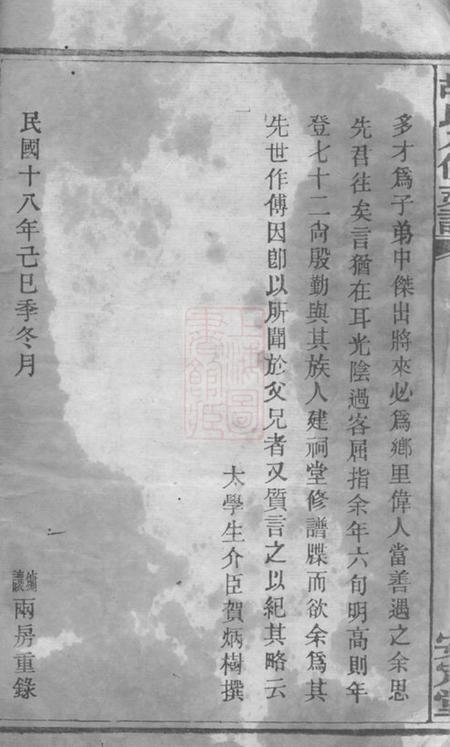 多才爲子弟中傑出將來必爲鄉里偉人當善遇之余思
先君往矣言猶在耳光陰過客屈指余年六旬明高則年
登七十二尙殷勤與其族人建祠堂修譜牒而欲余爲其
先世作傳因卽以所聞於父兄者又質言之以紀其略云
太學生介臣賀炳樹撰
民國十八年己巳季冬月
兩房重錄
上海圖書館藏